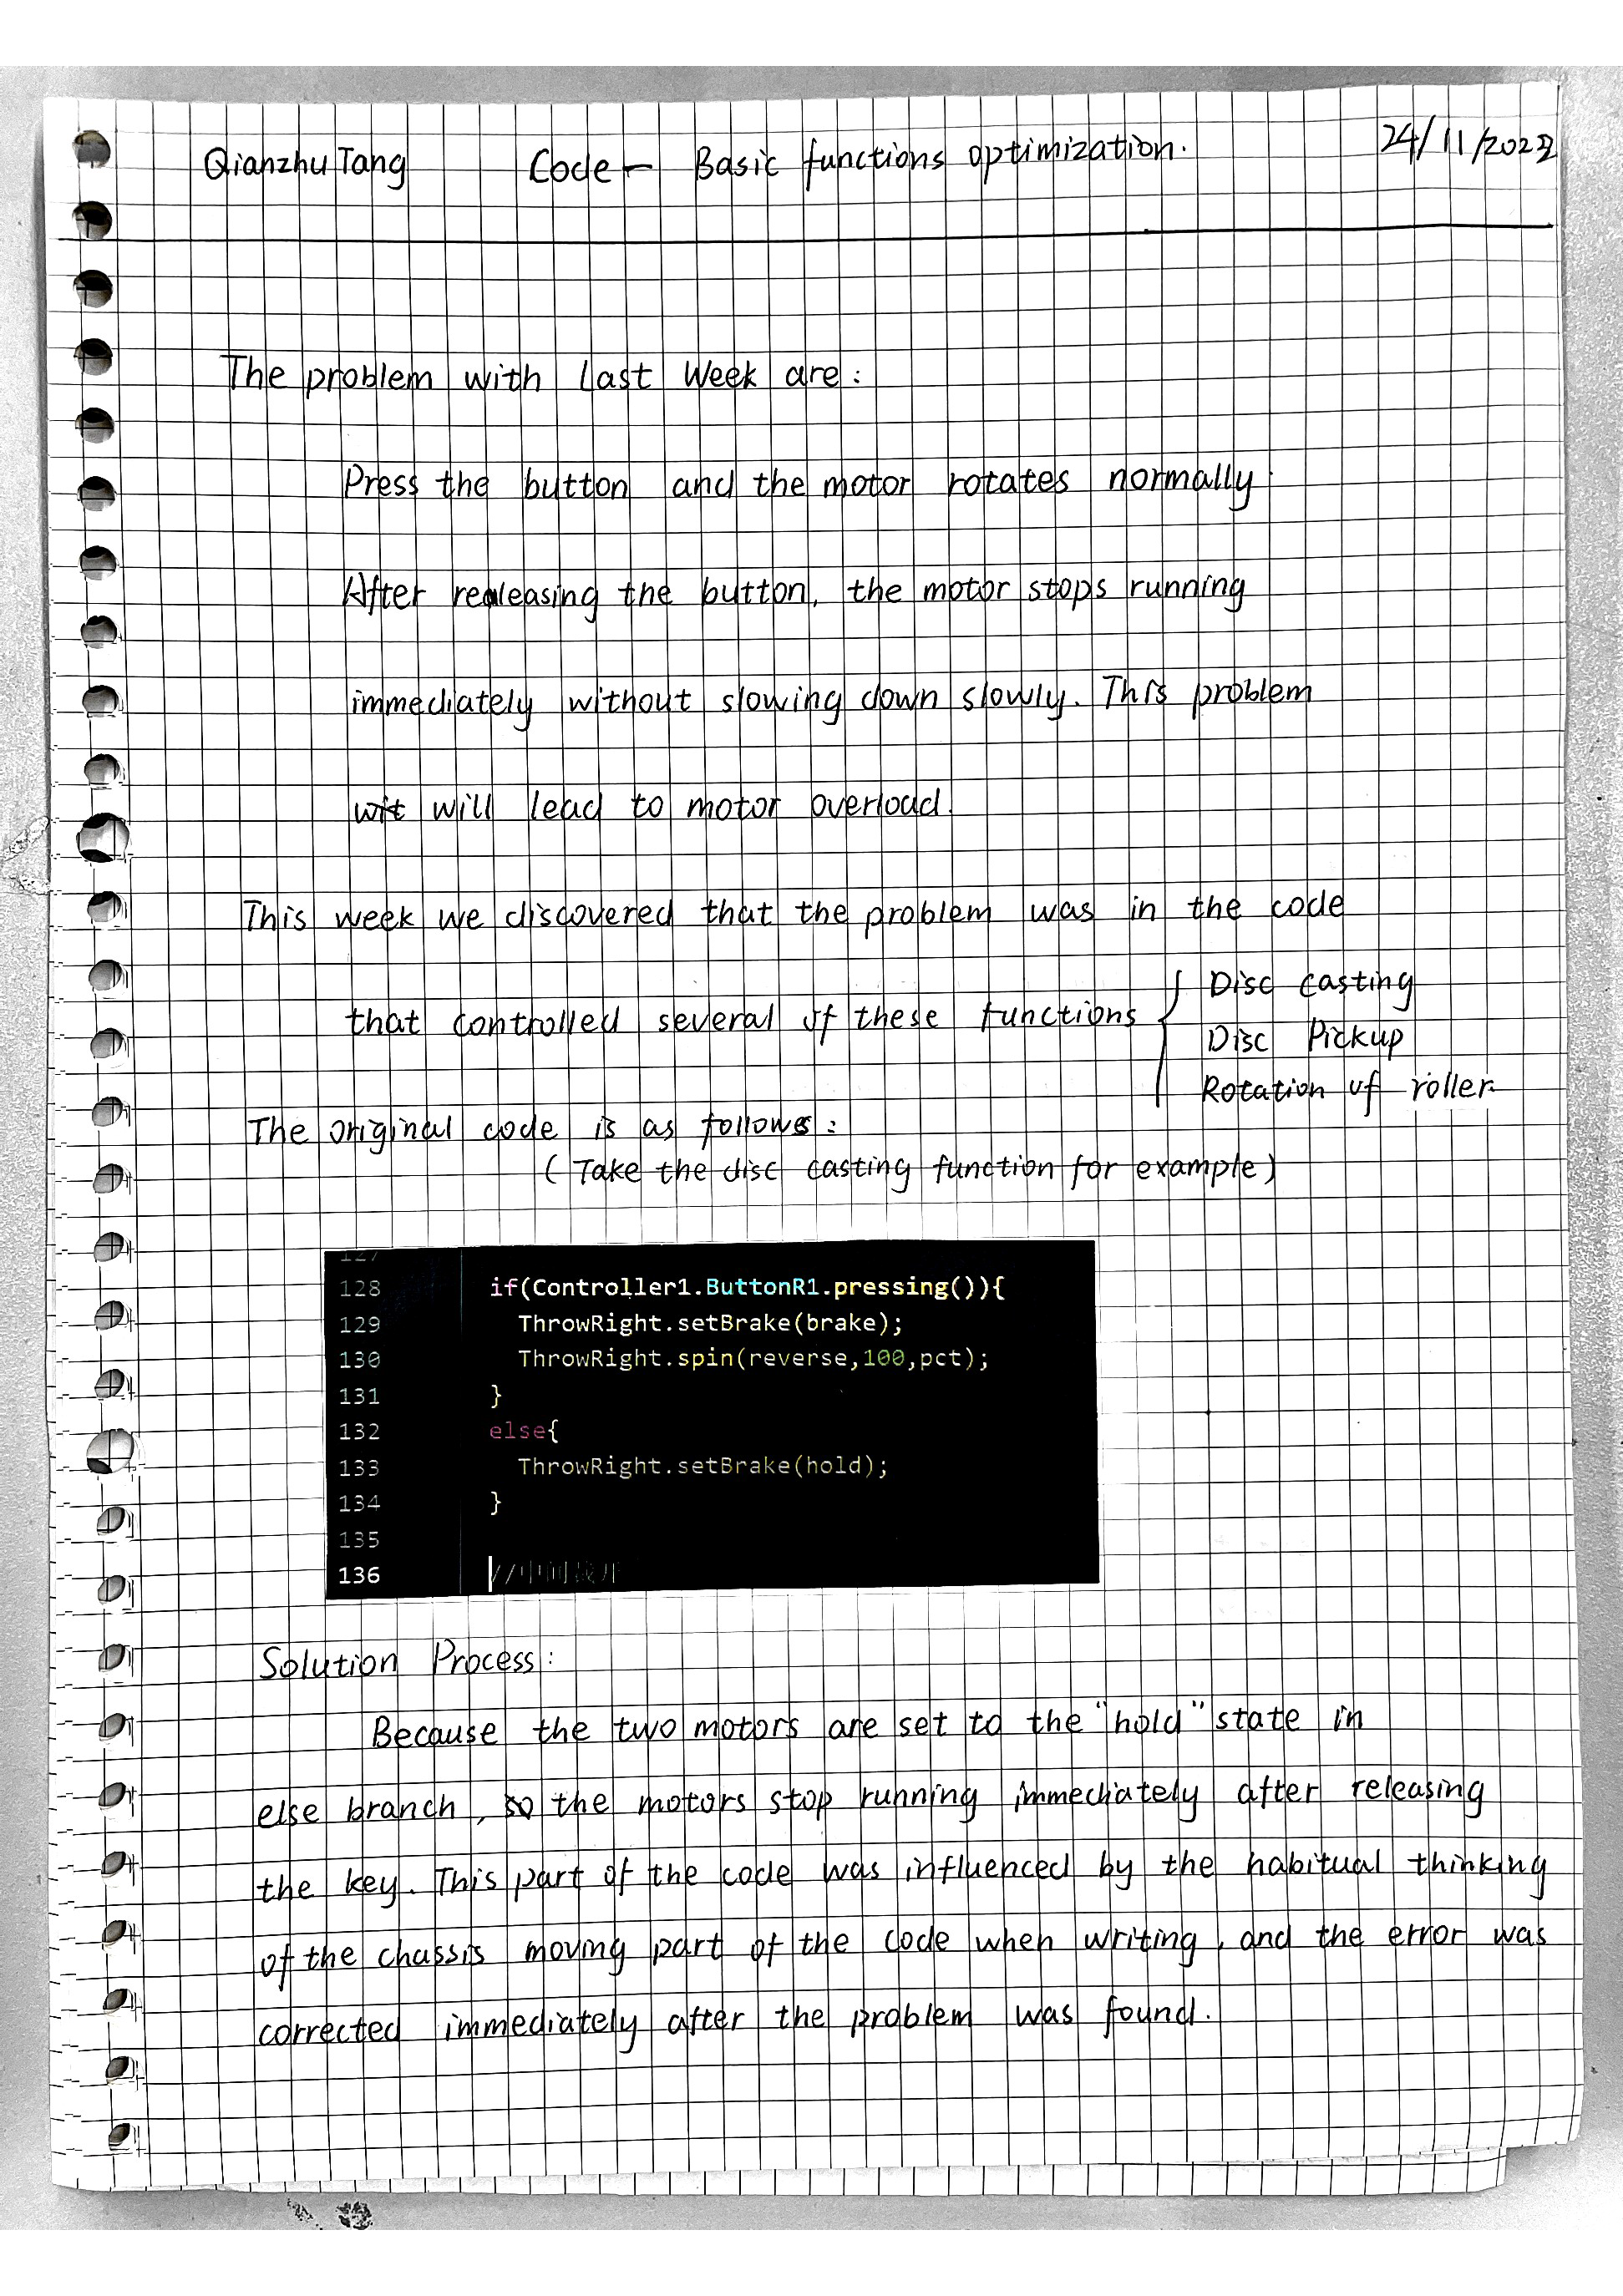 Qianzhu Tang Code - Basic functions optimization. 24/11/2022
The problem with last week are:
Press the button and the motor rotates normally.
After realeasing the button, the motor stops running
immediately without slowing down slowly. This problem
will lead to motor overload.
This week we discovered that the problem was in the code
that controlled several of these functions { Disc casting
Disc Pickup
Rotation of roller
The original code is as follows:
(Take the disc casting function for example)
127
128 if(Controller1.ButtonR1.pressing()){
129 ThrowRight.setBrake(brake);
130 ThrowRight.spin(reverse,100,pct);
131 }
132 else{
133 ThrowRight.setBrake(hold);
134 }
135
136 //
Solution Process:
Because the two motors are set to the "hold" state in
else branch, so the motors stop running immediately after releasing
the key. This part of the code was influenced by the habitual thinking
of the chassis moving part of the code when writing, and the error was
corrected immediately after the problem was found.